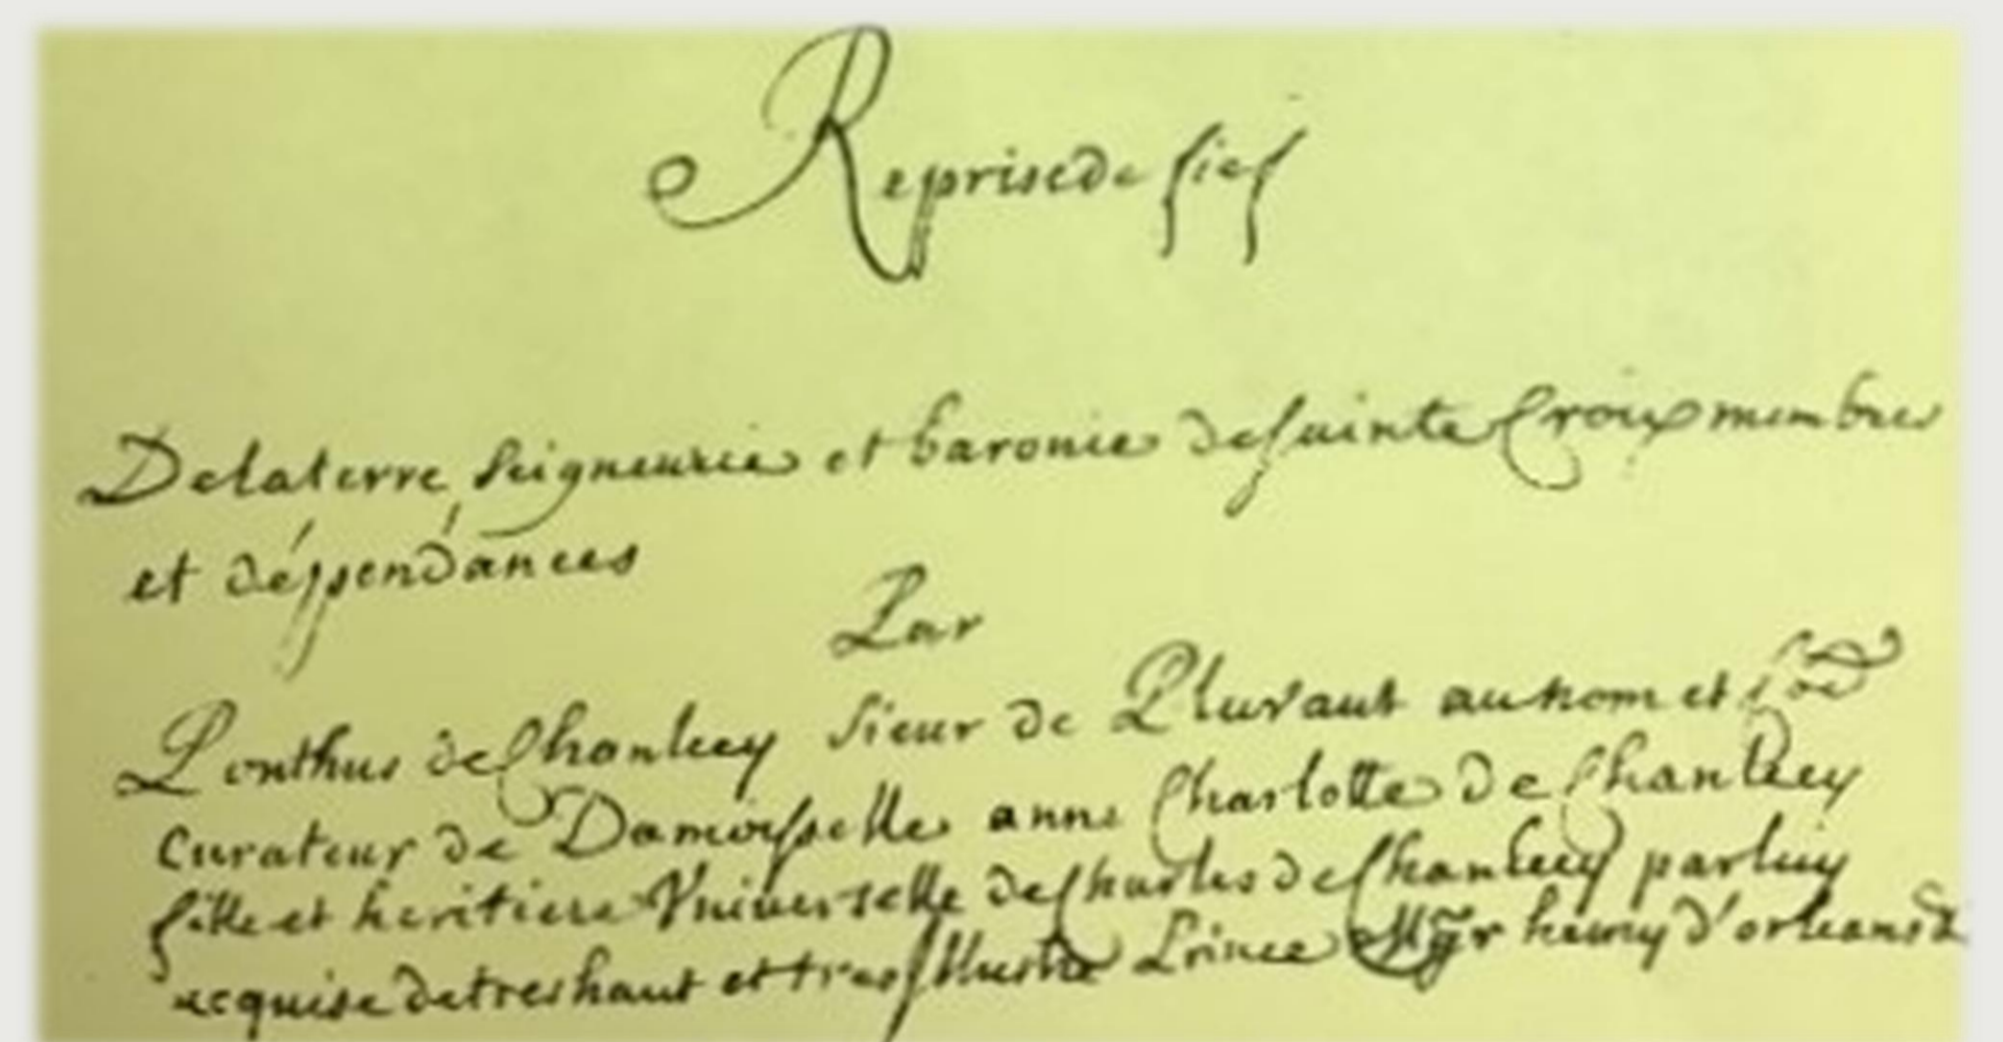 Reprise de fief
De la terre, Seigneurie et baronie de Sainte Croix membres
et déppendances
Par
Ponthus de Chanlecy sieur de Pluvaut au nom et
Curateur de Damoisselle anne Charlotte de Chanlecy
fille et heritiere Universelle de Charles de Chanlecy par luy
acquise de tres haut et tres Illustre Prince Mgr henry d'orleans